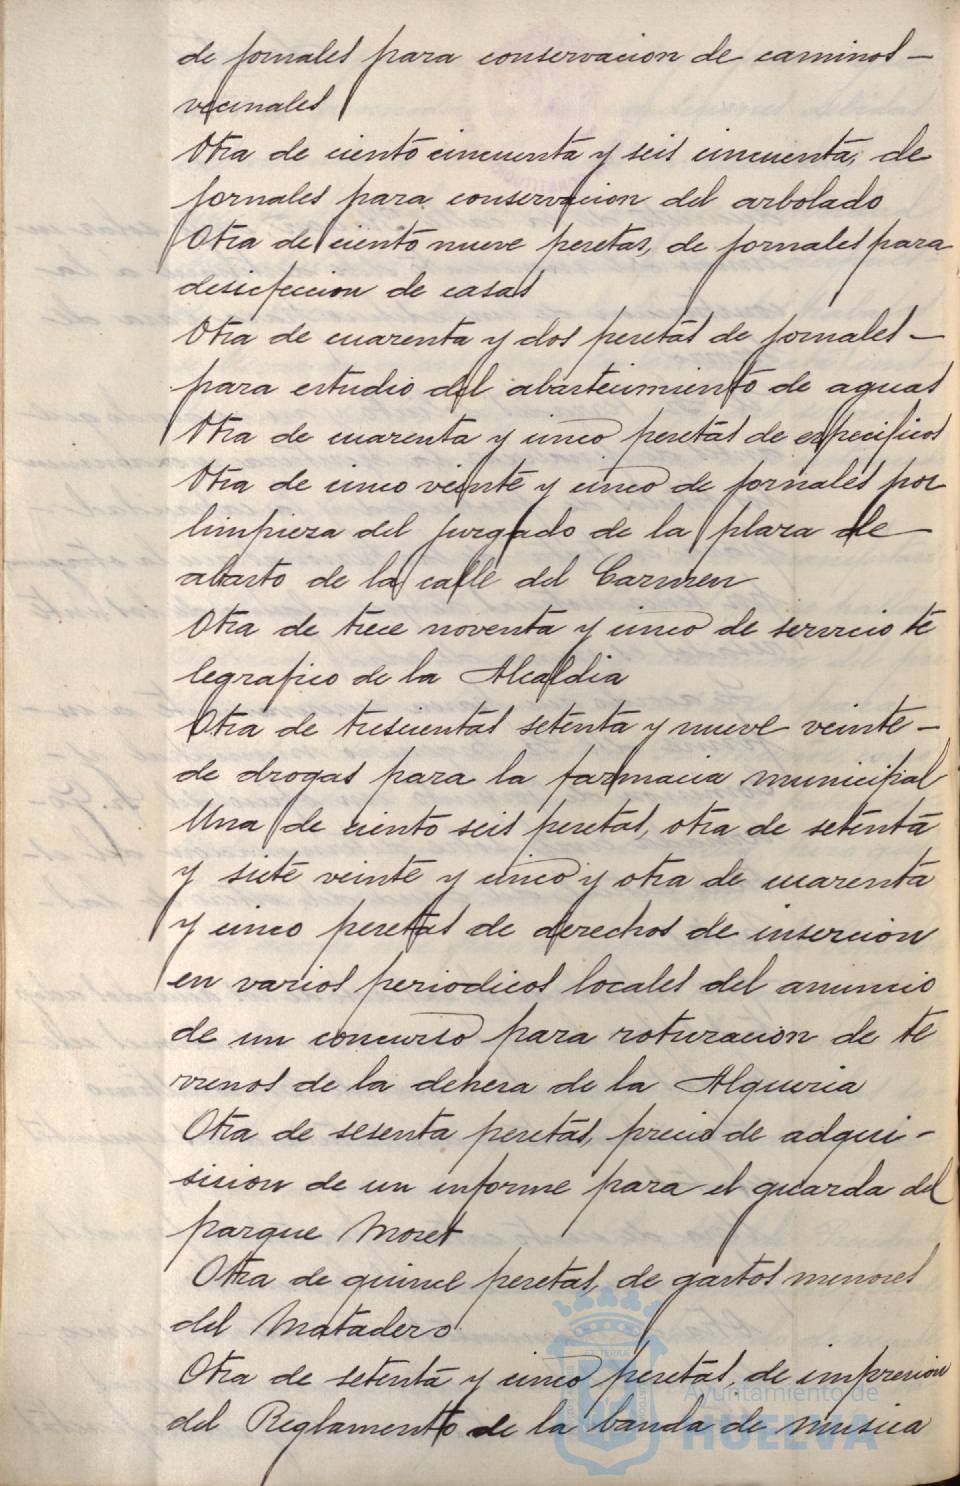 de jornales para conservacion de caminos —
vecinales
Otra de ciento cincuenta y seis cincuenta, de
jornales para conservacion del arbolado
Otra de ciento nueve pesetas, de jornales para
desicfeccion de casas
Otra de cuarenta y dos pesetas de jornales —
para estudio del abastecimiento de aguas
Otra de cuarenta y cinco pesetas de especificos
Otra de cinco veinte y cinco de jornales por
limpieza del juzgado de la plaza de —
abasto de la calle del Carmen
Otra de trece noventa y cinco de servicio te
legrafico de la Alcaldia
Otra de trescientas setenta y nueve veinte —
de drogas para la farmacia municipal
Una de ciento seis pesetas, otra de setenta
y siete veinte y cinco y otra de cuarenta
y cinco pesetas de derechos de insercion
en varios periodicos locales del anuncio
de un concurso para roturacion de te
rrenos de la dehesa de la Alqueria
Otra de sesenta pesetas, precio de adqui-
sision de un informe para el guarda del
parque Moret
Otra de quince pesetas, de gastos menores
del Matadero
Otra de setenta y cinco pesetas, de impresion
del Reglamento de la banda de musica
Ayuntamiento de
HUELVA